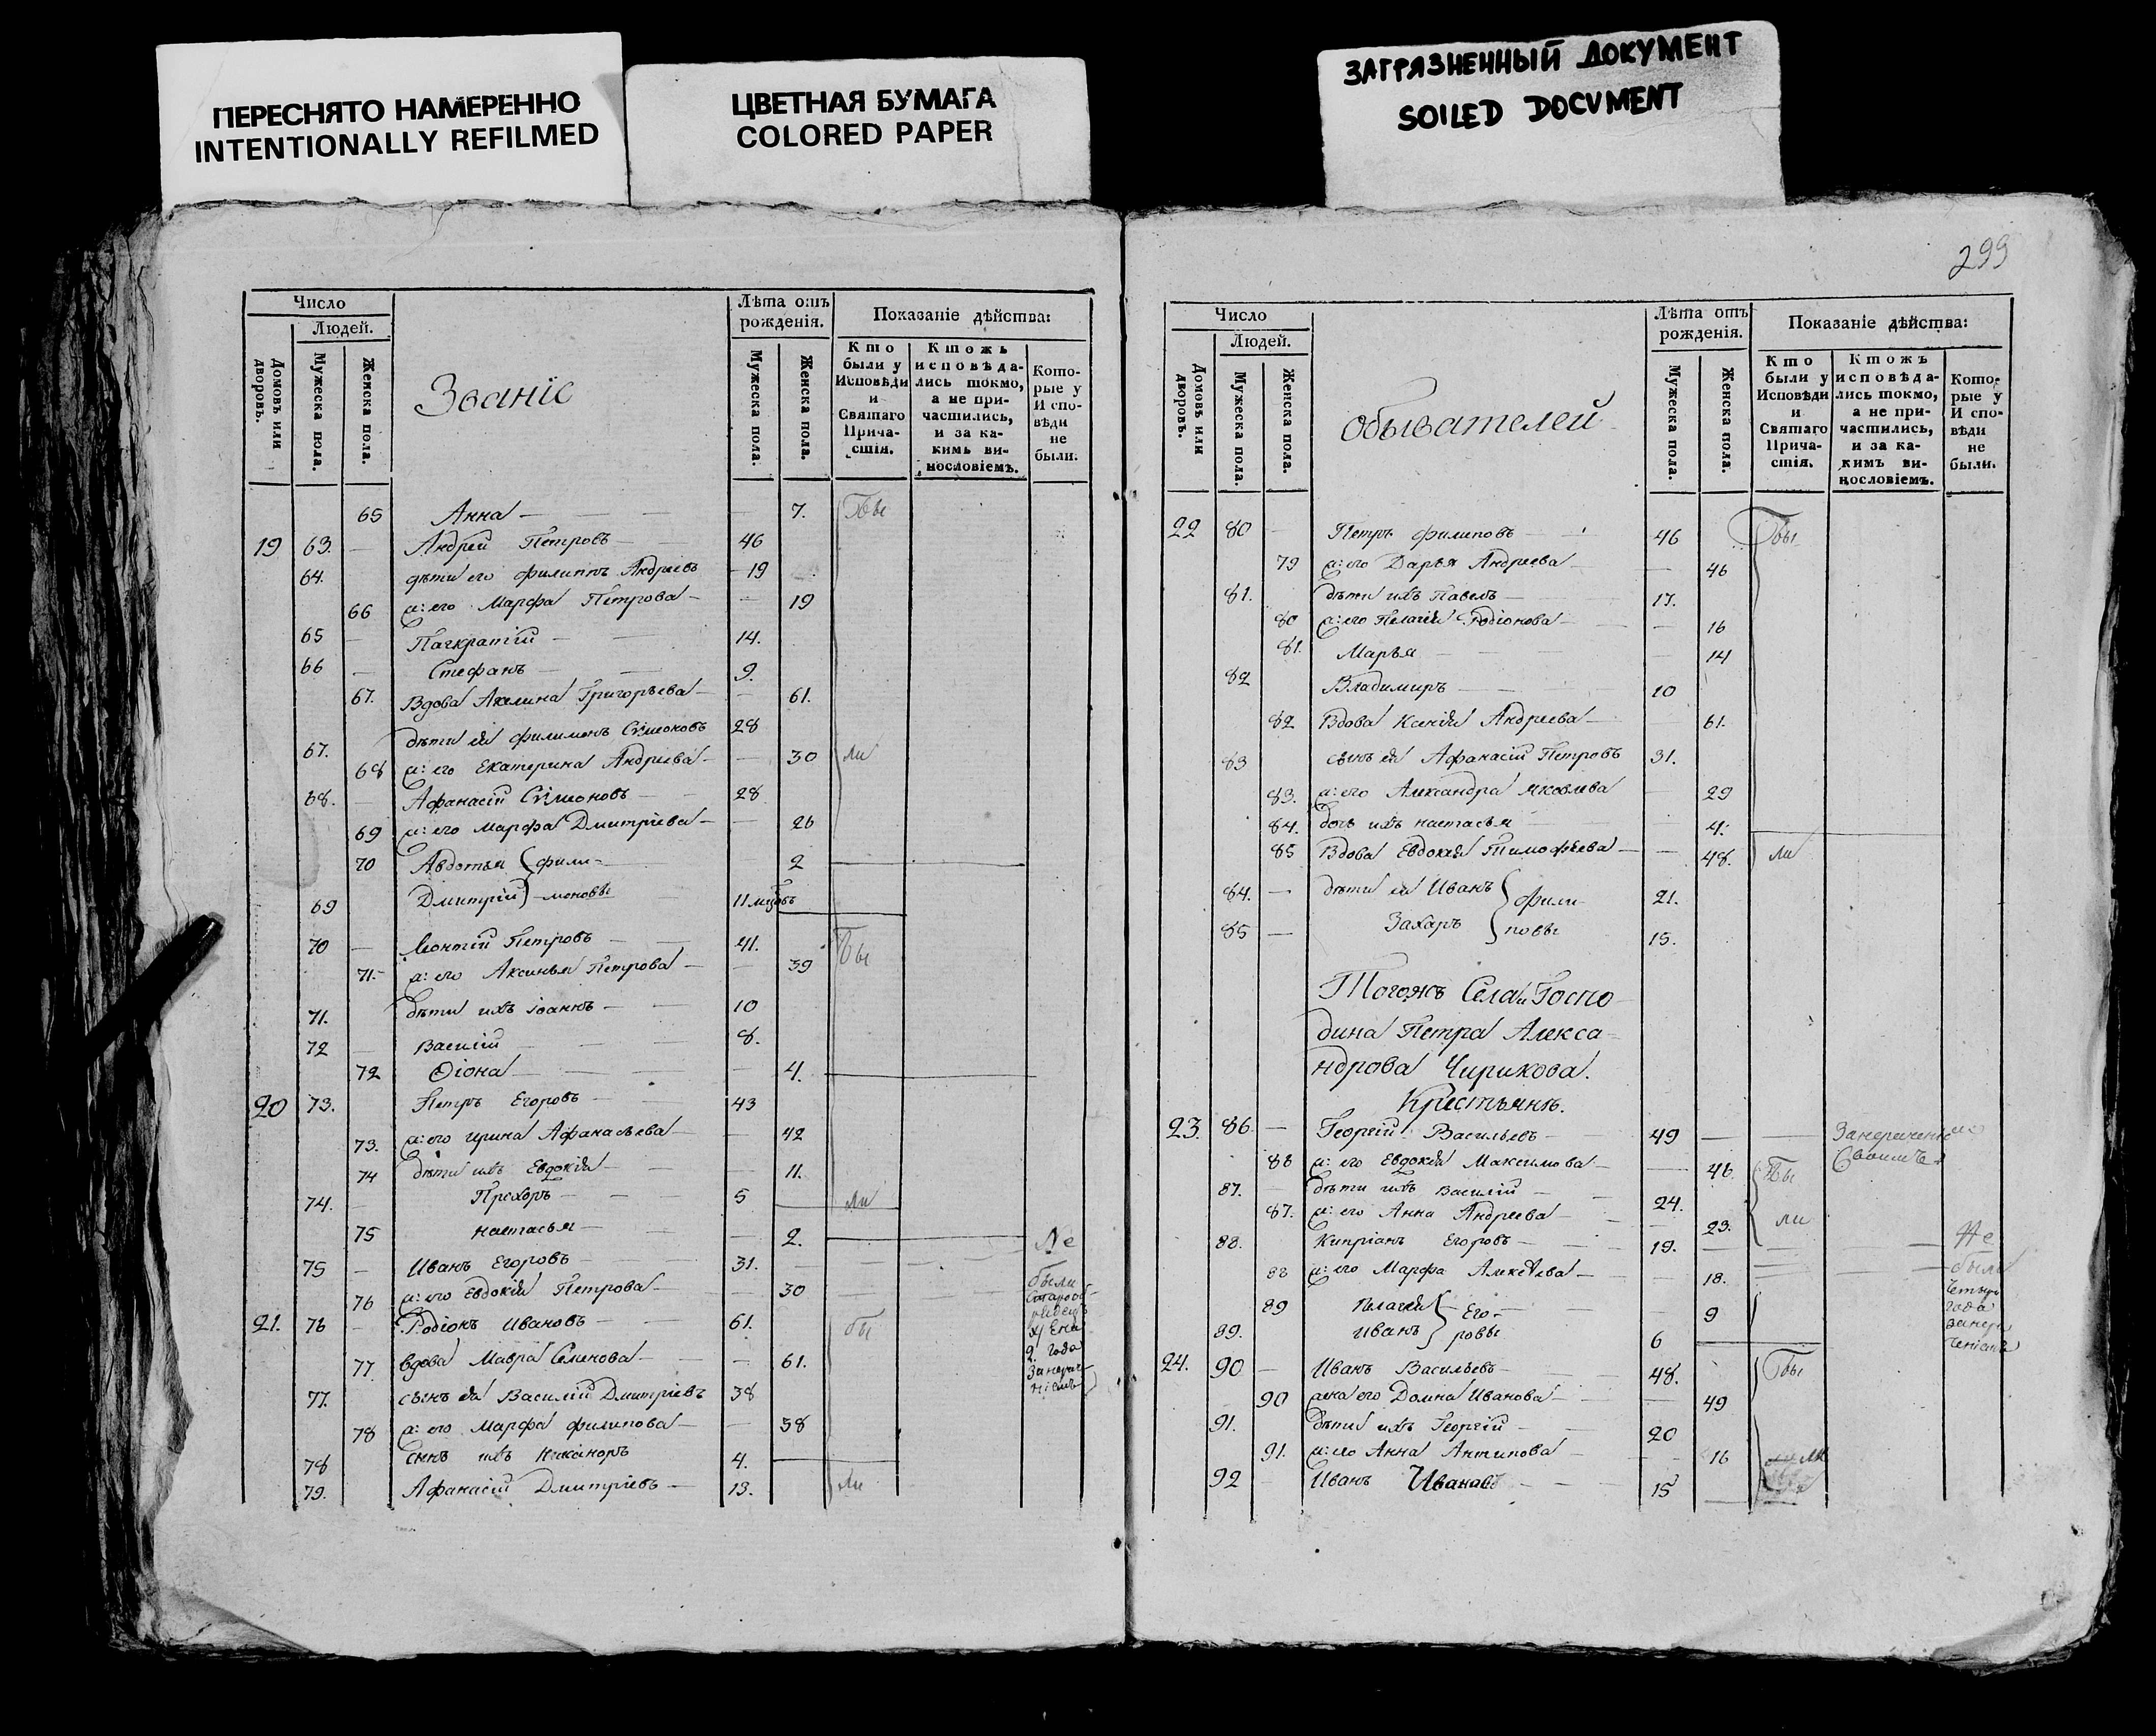 ПЕРЕСНЯТО НАМЕРЕННО
INTENTIONALLY REFILMED
ЦВЕТНАЯ БУМАГА
COLORED PAPER
ЗАГРЯЗНЕННЫЙ ДОКУМЕНТ
SOILED DOCUMENT
Число
Людей.
Домовъ или дворовъ.
Мужеска пола.
Женска пола.
Званіе
Лѣта отъ
рожденія.
Мужеска пола.
Женска пола.
Показаніе дѣйства:
Кто
были у
Исповѣди
и
Святаго
Прича-
стія.
Ктожъ
исповѣда-
лись токмо,
а не при-
частились,
и за ка-
кимъ ви-
нословіемъ.
Кото-
рые у
Испо-
вѣди
не
были.
65 Анна 7. Бы
19 63. Андрей Петровъ 46
64. дѣти его Филиппъ Андреевъ 19
66 ж: его Марфа Петрова 19
65 Панкратій 14.
66 Стефанъ 9.
67. Вдова Акилина Григорьева 61.
67. дѣти ея Филимонъ Симоновъ 28
68 ж: его Екатерина Андреева 30 ли
68. Афанасій Симоновъ 28
69 ж: его Марфа Дмитріева 26
70 Авдотья } фили- 2
69 Дмитрій } -моновы 11 мцовъ
70 Леонтій Петровъ 41. Бы
71. ж: его Аксинья Петрова 39
71. дѣти ихъ Іоаннъ 10
72 Василій 8.
72 Ѳіона 4.
20 73. Петръ Егоровъ 43
73. ж: его Ирина Афанасьева 42
74 дѣти ихъ Евдокія 11.
74. Прохоръ 5 ли
75 Настасья 2. Не
75 Иванъ Егоровъ 31. были
76 ж: его Евдокія Петрова 30
21. 76 Родіонъ Ивановъ 61. бы
2 года
77 вдова Мавра Семенова 61.
77. сынъ ея Василій Дмитріевъ 38
78 ж: его Марфа Филипова 38
78 сынъ ихъ Никаноръ 4.
79. Афанасій Дмитріевъ 13. ли
299
Число
Людей.
Домовъ или дворовъ.
Мужеска пола.
Женска пола.
обывателей
Лѣта отъ
рожденія.
Мужеска пола.
Женска пола.
Показаніе дѣйства:
Кто
были у
Исповѣди
и
Святаго
Прича-
стія.
Ктожъ
исповѣда-
лись токмо,
а не при-
частились,
и за ка-
кимъ ви-
нословіемъ.
Кото-
рые у
Испо-
вѣди
не
были.
22 80 Петръ Филиповъ 46 Бы
79 ж: его Дарья Андреева 46
81. дѣти ихъ Павелъ 17.
80 ж: его Пелагія Родіонова 16
81. Марья 14
82 Владимиръ 10
82 Вдова Ксенія Андреева 61.
83 сынъ ея Афанасій Петровъ 31.
83. ж: его Александра Яковлева 29
84. дочь ихъ Настасья 4.
85 Вдова Евдокія Тимофѣева 48. ли
84. дѣти ея Иванъ } Фили- 21.
85 Захаръ } повы 15.
Тогожъ Села Госпо-
дина Петра Алекса-
ндрова Чирикова.
Крестьянѣ.
23. 86 Георгій Васильевъ 49
88 ж: его Евдокія Максимова 46. Бы
87. дѣти ихъ Василій 24.
87. ж: его Анна Андреева 23. ли
88. Кипріанъ Егоровъ 19. Не
88 ж: его Марфа Алексѣева 18. были
89 Пелагея } Его- 9
89. Иванъ } ровы 6
четыре
года
24. 90 Иванъ Васильевъ 48. Бы
90 жена его Домна Иванова 49
91. дѣти ихъ Георгій 20
91. ж: его Анна Антипова 16
92 Иванъ Ивановъ 15